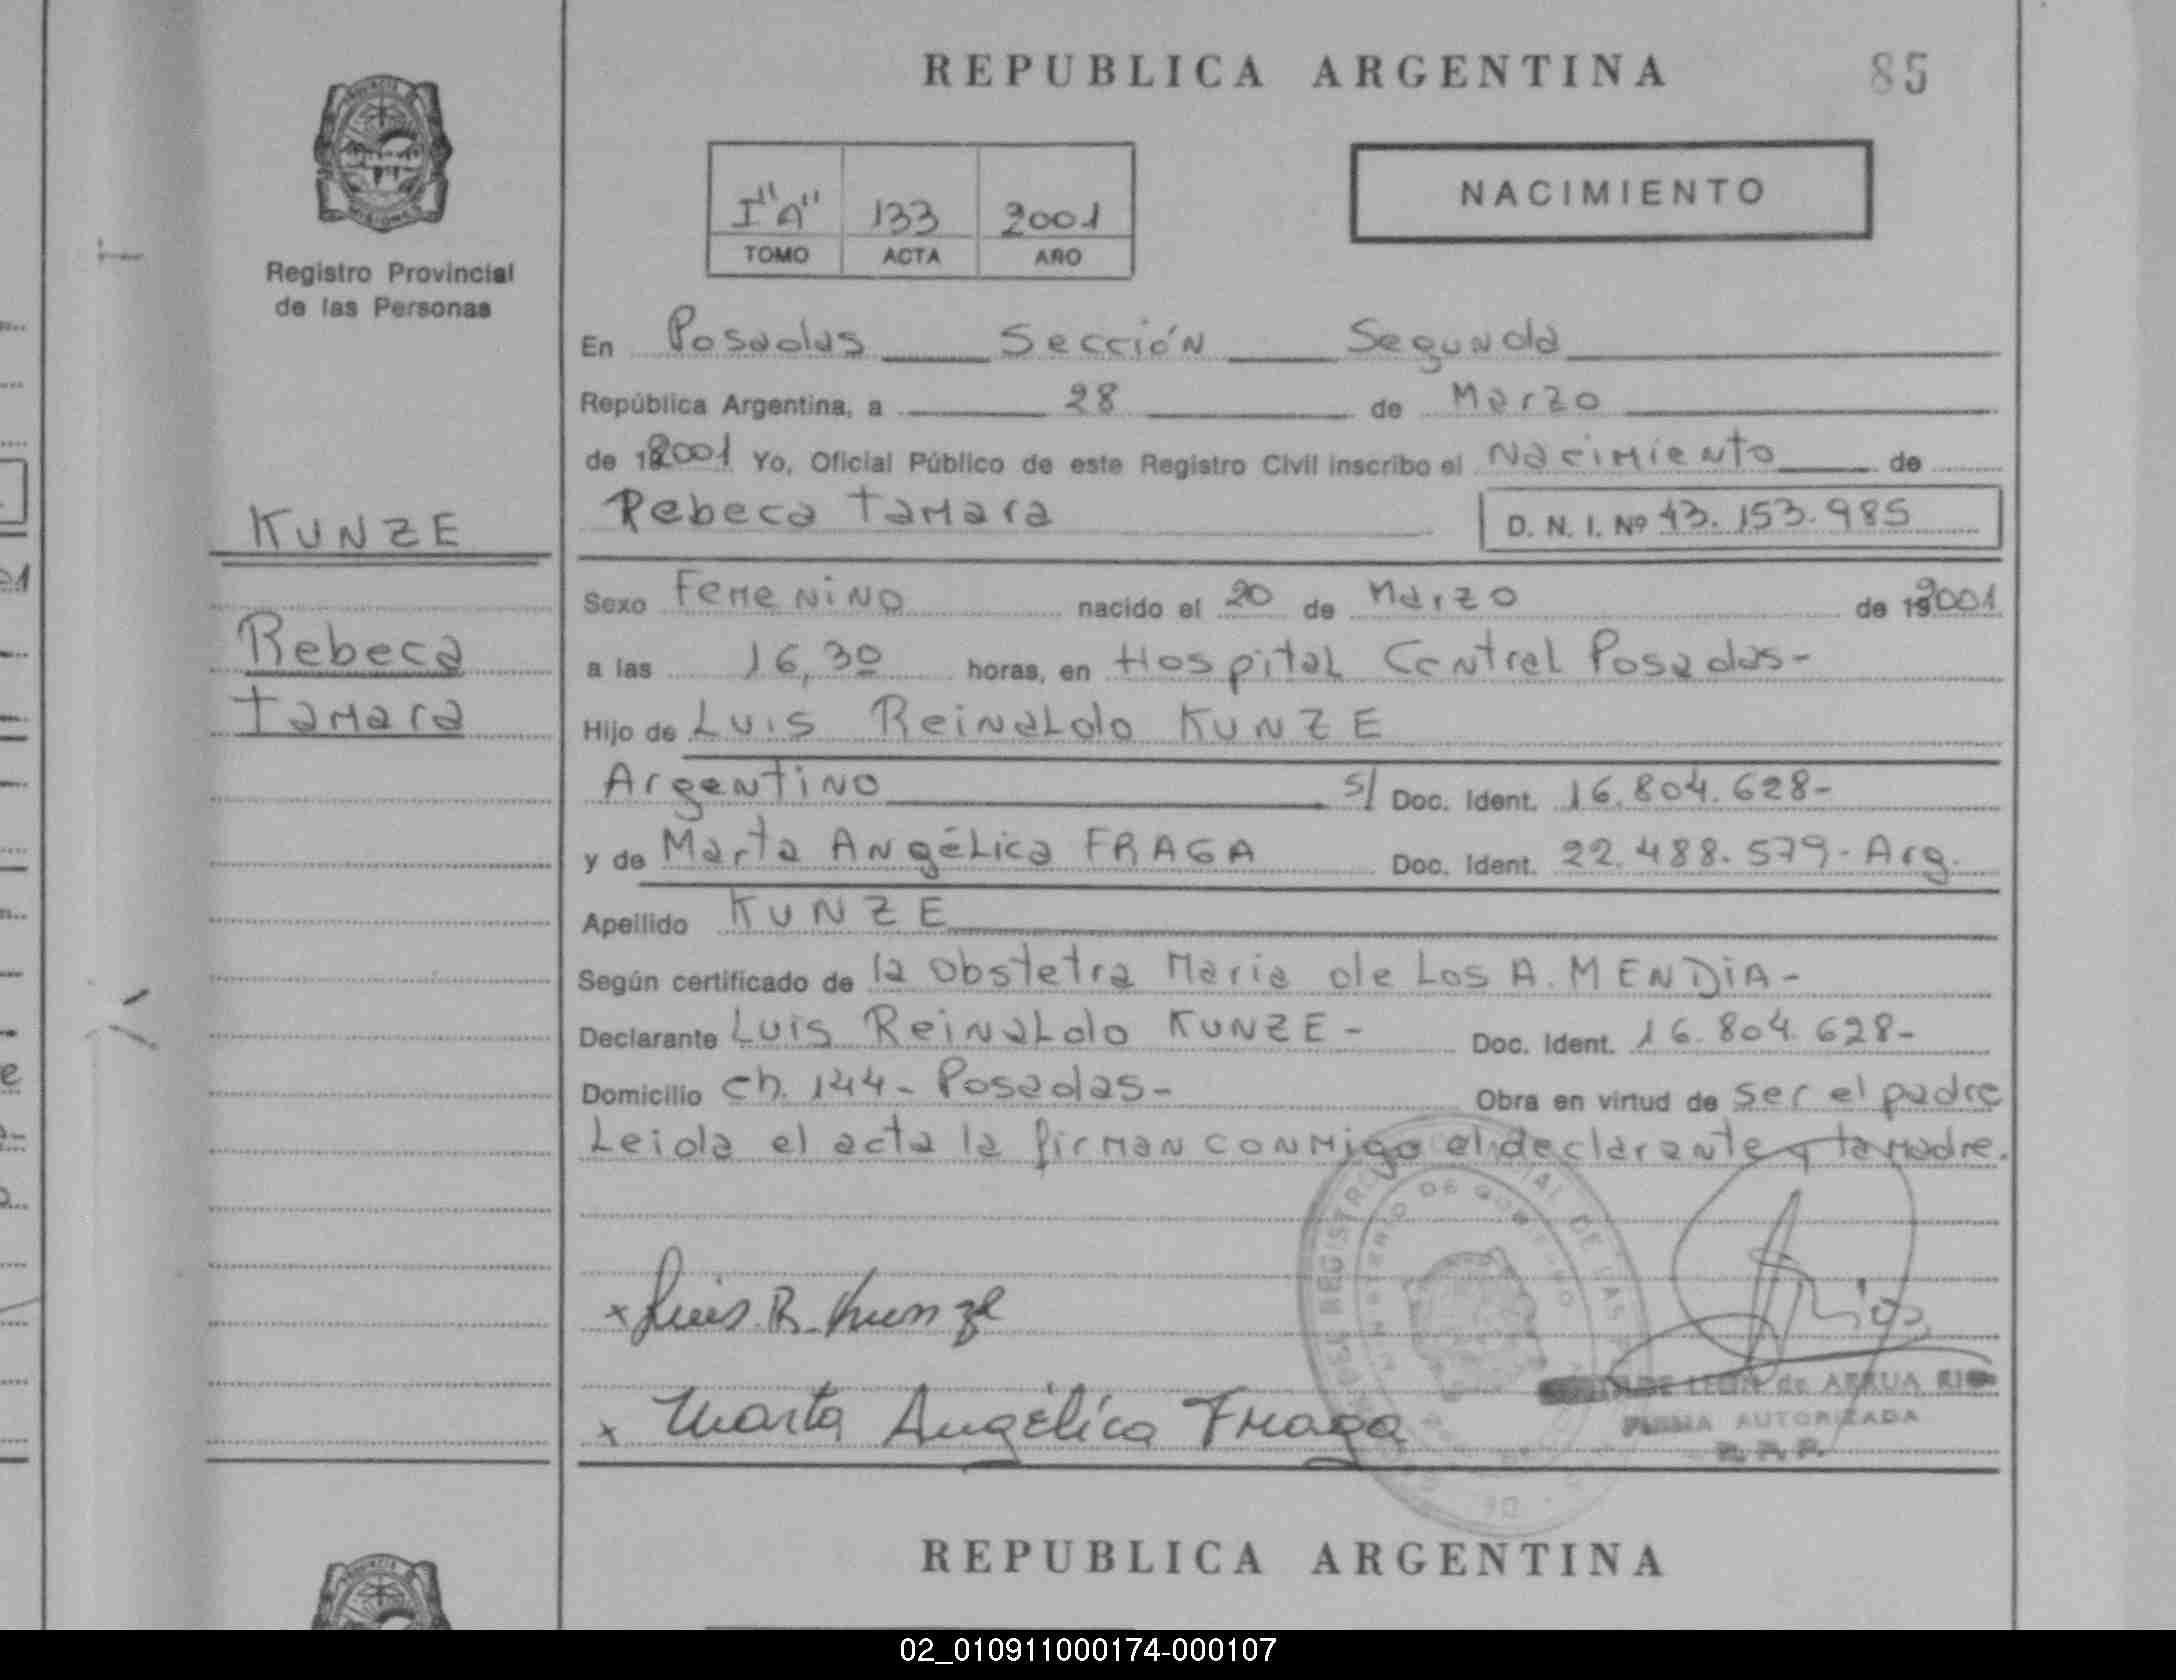 REPUBLICA ARGENTINA
85
I "A" 133 2001
TOMO ACTA AÑO
NACIMIENTO
Registro Provincial
de las Personas
En Posadas Sección Segunda
República Argentina, a 28 de Marzo
de 2001 Yo, Oficial Público de este Registro Civil inscribo el Nacimiento de
Rebeca Tamara D. N. I. Nº 43.153.985
KUNZE
Rebeca
Tamara
Sexo Femenino nacido el 20 de Marzo de 2001
a las 16,30 horas, en Hospital Central Posadas-
Hijo de Luis Reinaldo KUNZE
Argentino s/ Doc. Ident. 16.804.628-
y de Marta Angélica FRAGA Doc. Ident. 22.488.579- Arg.
Apellido KUNZE
Según certificado de la Obstetra Maria de Los A. MENDIA-
Declarante Luis Reinaldo KUNZE- Doc. Ident. 16.804.628-
Domicilio Ch. 144- Posadas- Obra en virtud de ser el padre
Leida el acta la firman conmigo el declarante y la madre.
x Luis. R. Kunze
x Marta Angélica Fraga
de ARRUA
FIRMA AUTORIZADA
R. P. P.
REPUBLICA ARGENTINA
02_010911000174-000107